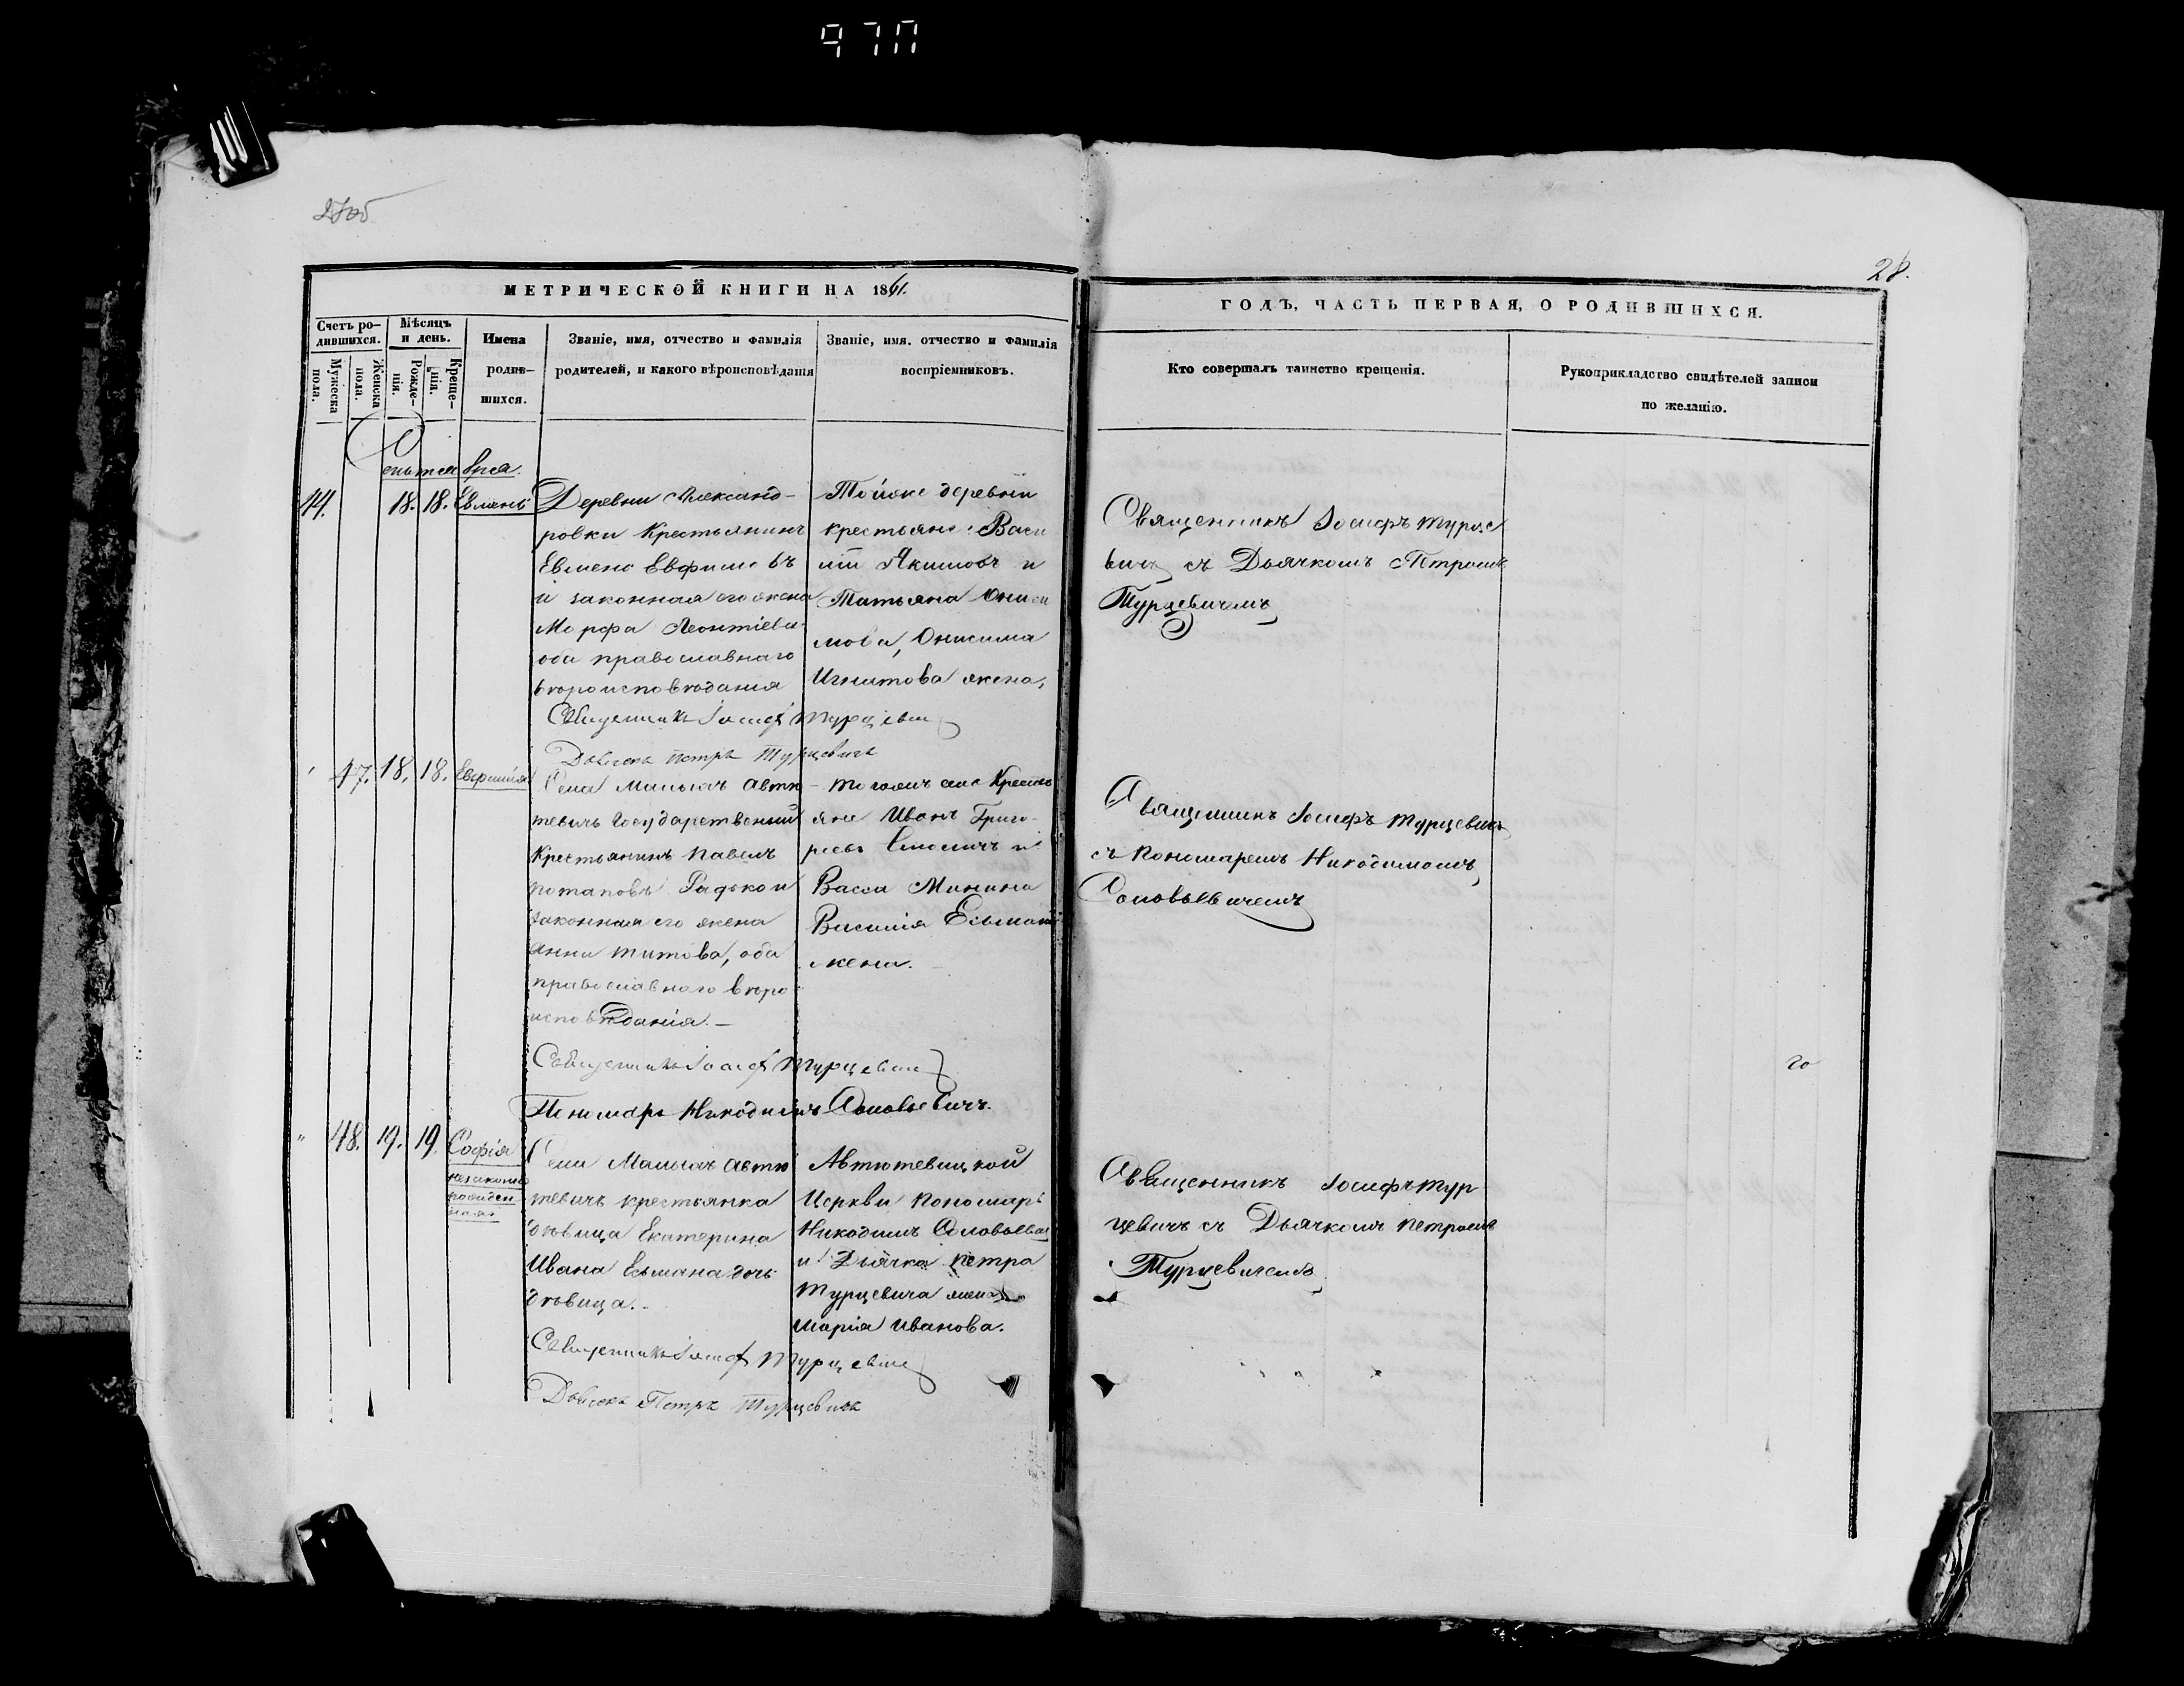 97П
27об
28.
МЕТРИЧЕСКОЙ КНИГИ НА 1861.
Счетъ ро-
дившихся.
Мужеска
пола.
Женска
пола.
Мѣсяцъ
и день.
Рожде-
нія.
Креще-
нія.
Имена
родив-
шихся.
Званіе, имя, отчество и фамилія
родителей, и какого вѣроисповѣданія
Званіе, имя. отчество и фамилія
воспріемниковъ.
ГОДЪ, ЧАСТЬ ПЕРВАЯ, О РОДИВШИХСЯ.
Кто совершалъ таинство крещенія.
Рукоприкладство свидѣтелей записи
по желанію.
44.
18. 18.
Евменъ
Деревни Александ-
ровки Крестьянинъ
Евмено Евфимовъ
и законная его жена
Марфа Леонтіева
оба православнаго
вѣроисповѣданія
Тойже деревни
крестьяне: Васи
лій Якимовъ и
Татьяна Ониси
мова, Онисима
Игнатова жена,
Священникъ Іосифъ Турце
вичъ съ Дьячкомъ Петромъ
Турцевичемъ
Священникъ Іосифъ Турцевич
Дьячекъ Петръ Турцевичъ
47. 18. 18.
Евфимія
Села Малыхъ Автю
тевичъ Государственный
Крестьянинъ Павелъ
Потаповъ
законная его жена
Анна Титова, оба
православного вѣро
исповѣданія. —
Тогожъ села Крестья
яне Иванъ Григо-
рьевъ и
Васса Минина
Василія Есьмана
жена. —
Священникъ Іосифъ Турцевичъ
съ Пономаремъ Никодимомъ
Соловьевичемъ
Священникъ Іосифъ Турцевич
Пономарь Никодимъ Соловьевичъ.
" 48. 19. 19.
Софія
незаконно
рожден
ная
Села Малыхъ Автю
тевичъ крестьянка
дѣвица Екатерина
Ивана Есьмана дочь
дѣвица. -
Автютевицкой
Церкви Пономарь
Никодимъ Соловьевич
и Дьячка Петра
Турцевича жена
Марія Иванова.
Священникъ Іосифъ Тур
цевичъ съ Дьячкомъ Петромъ
Турцевичемъ
Священникъ Іосифъ Турцевич
Дьячекъ Петръ Турцевичъ